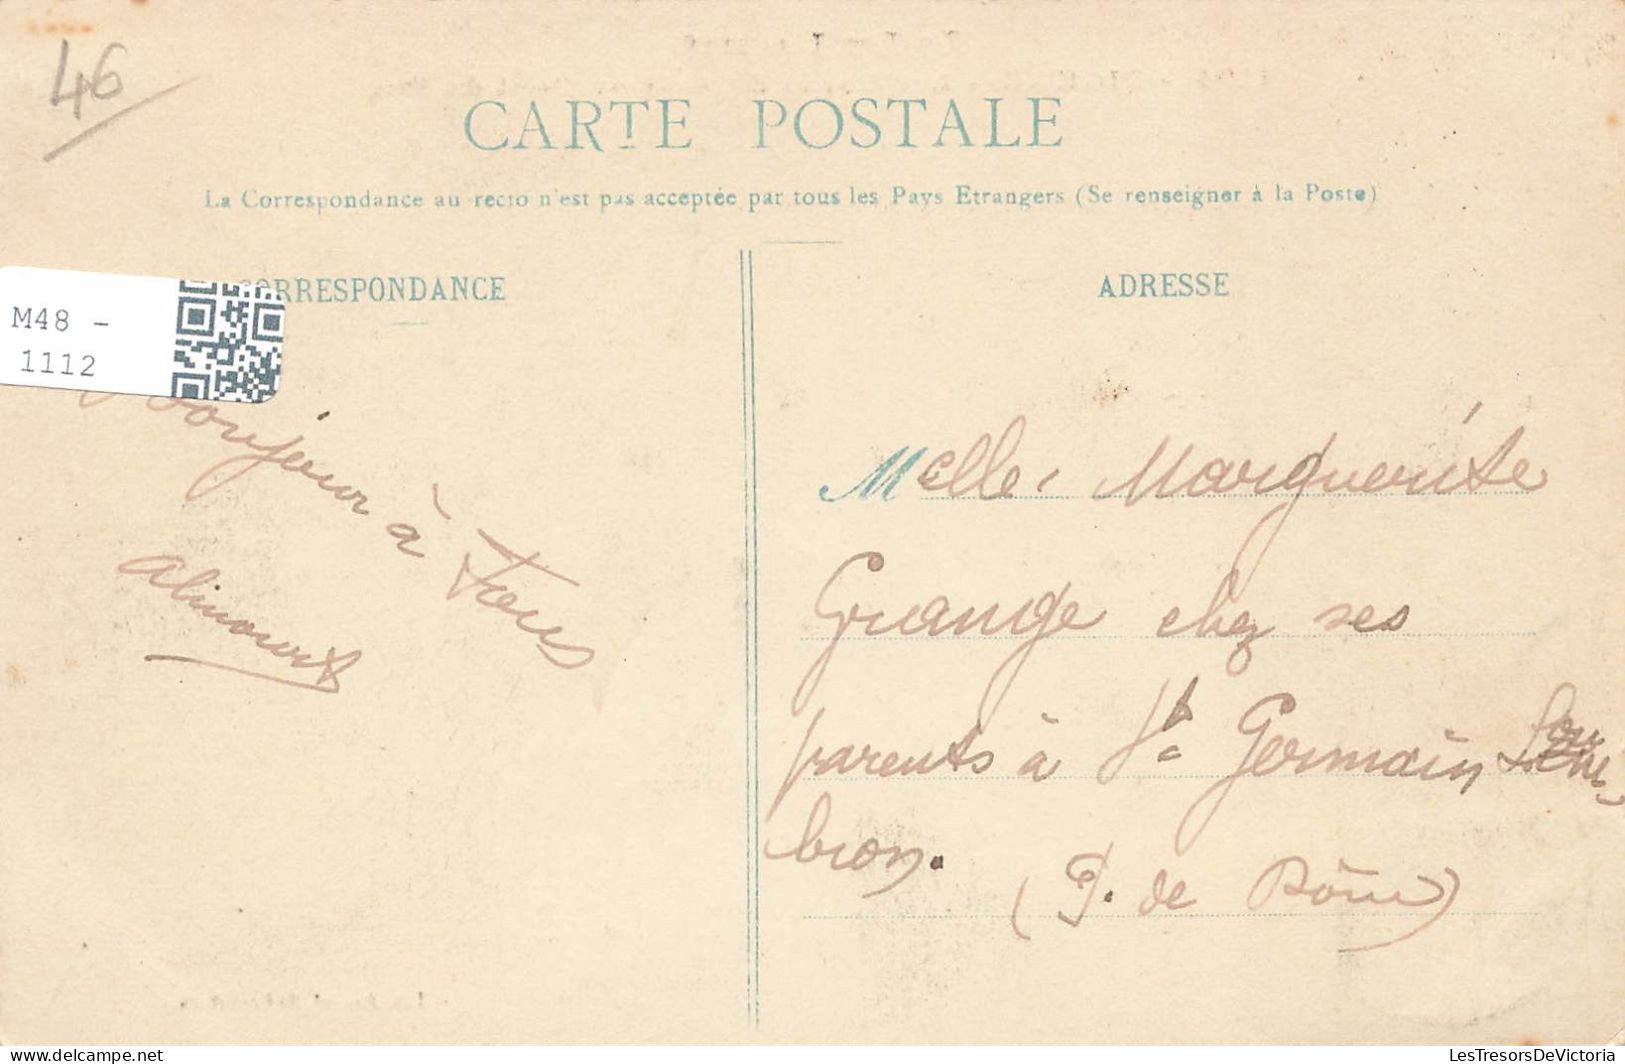 46
CARTE POSTALE
La Correspondance au recto n'est pas acceptée par tous les Pays Etrangers (Se renseigner à la Poste)
CORRESPONDANCE
ADRESSE
M48 -
1112
Boujour à Tous
Melle, Marguerite
Grange chez ses
parents à St Germain
bron.
(P. de Dôme)
LesTresorsDeVictoria
delcampe.net
LesTresorsDeVictoria